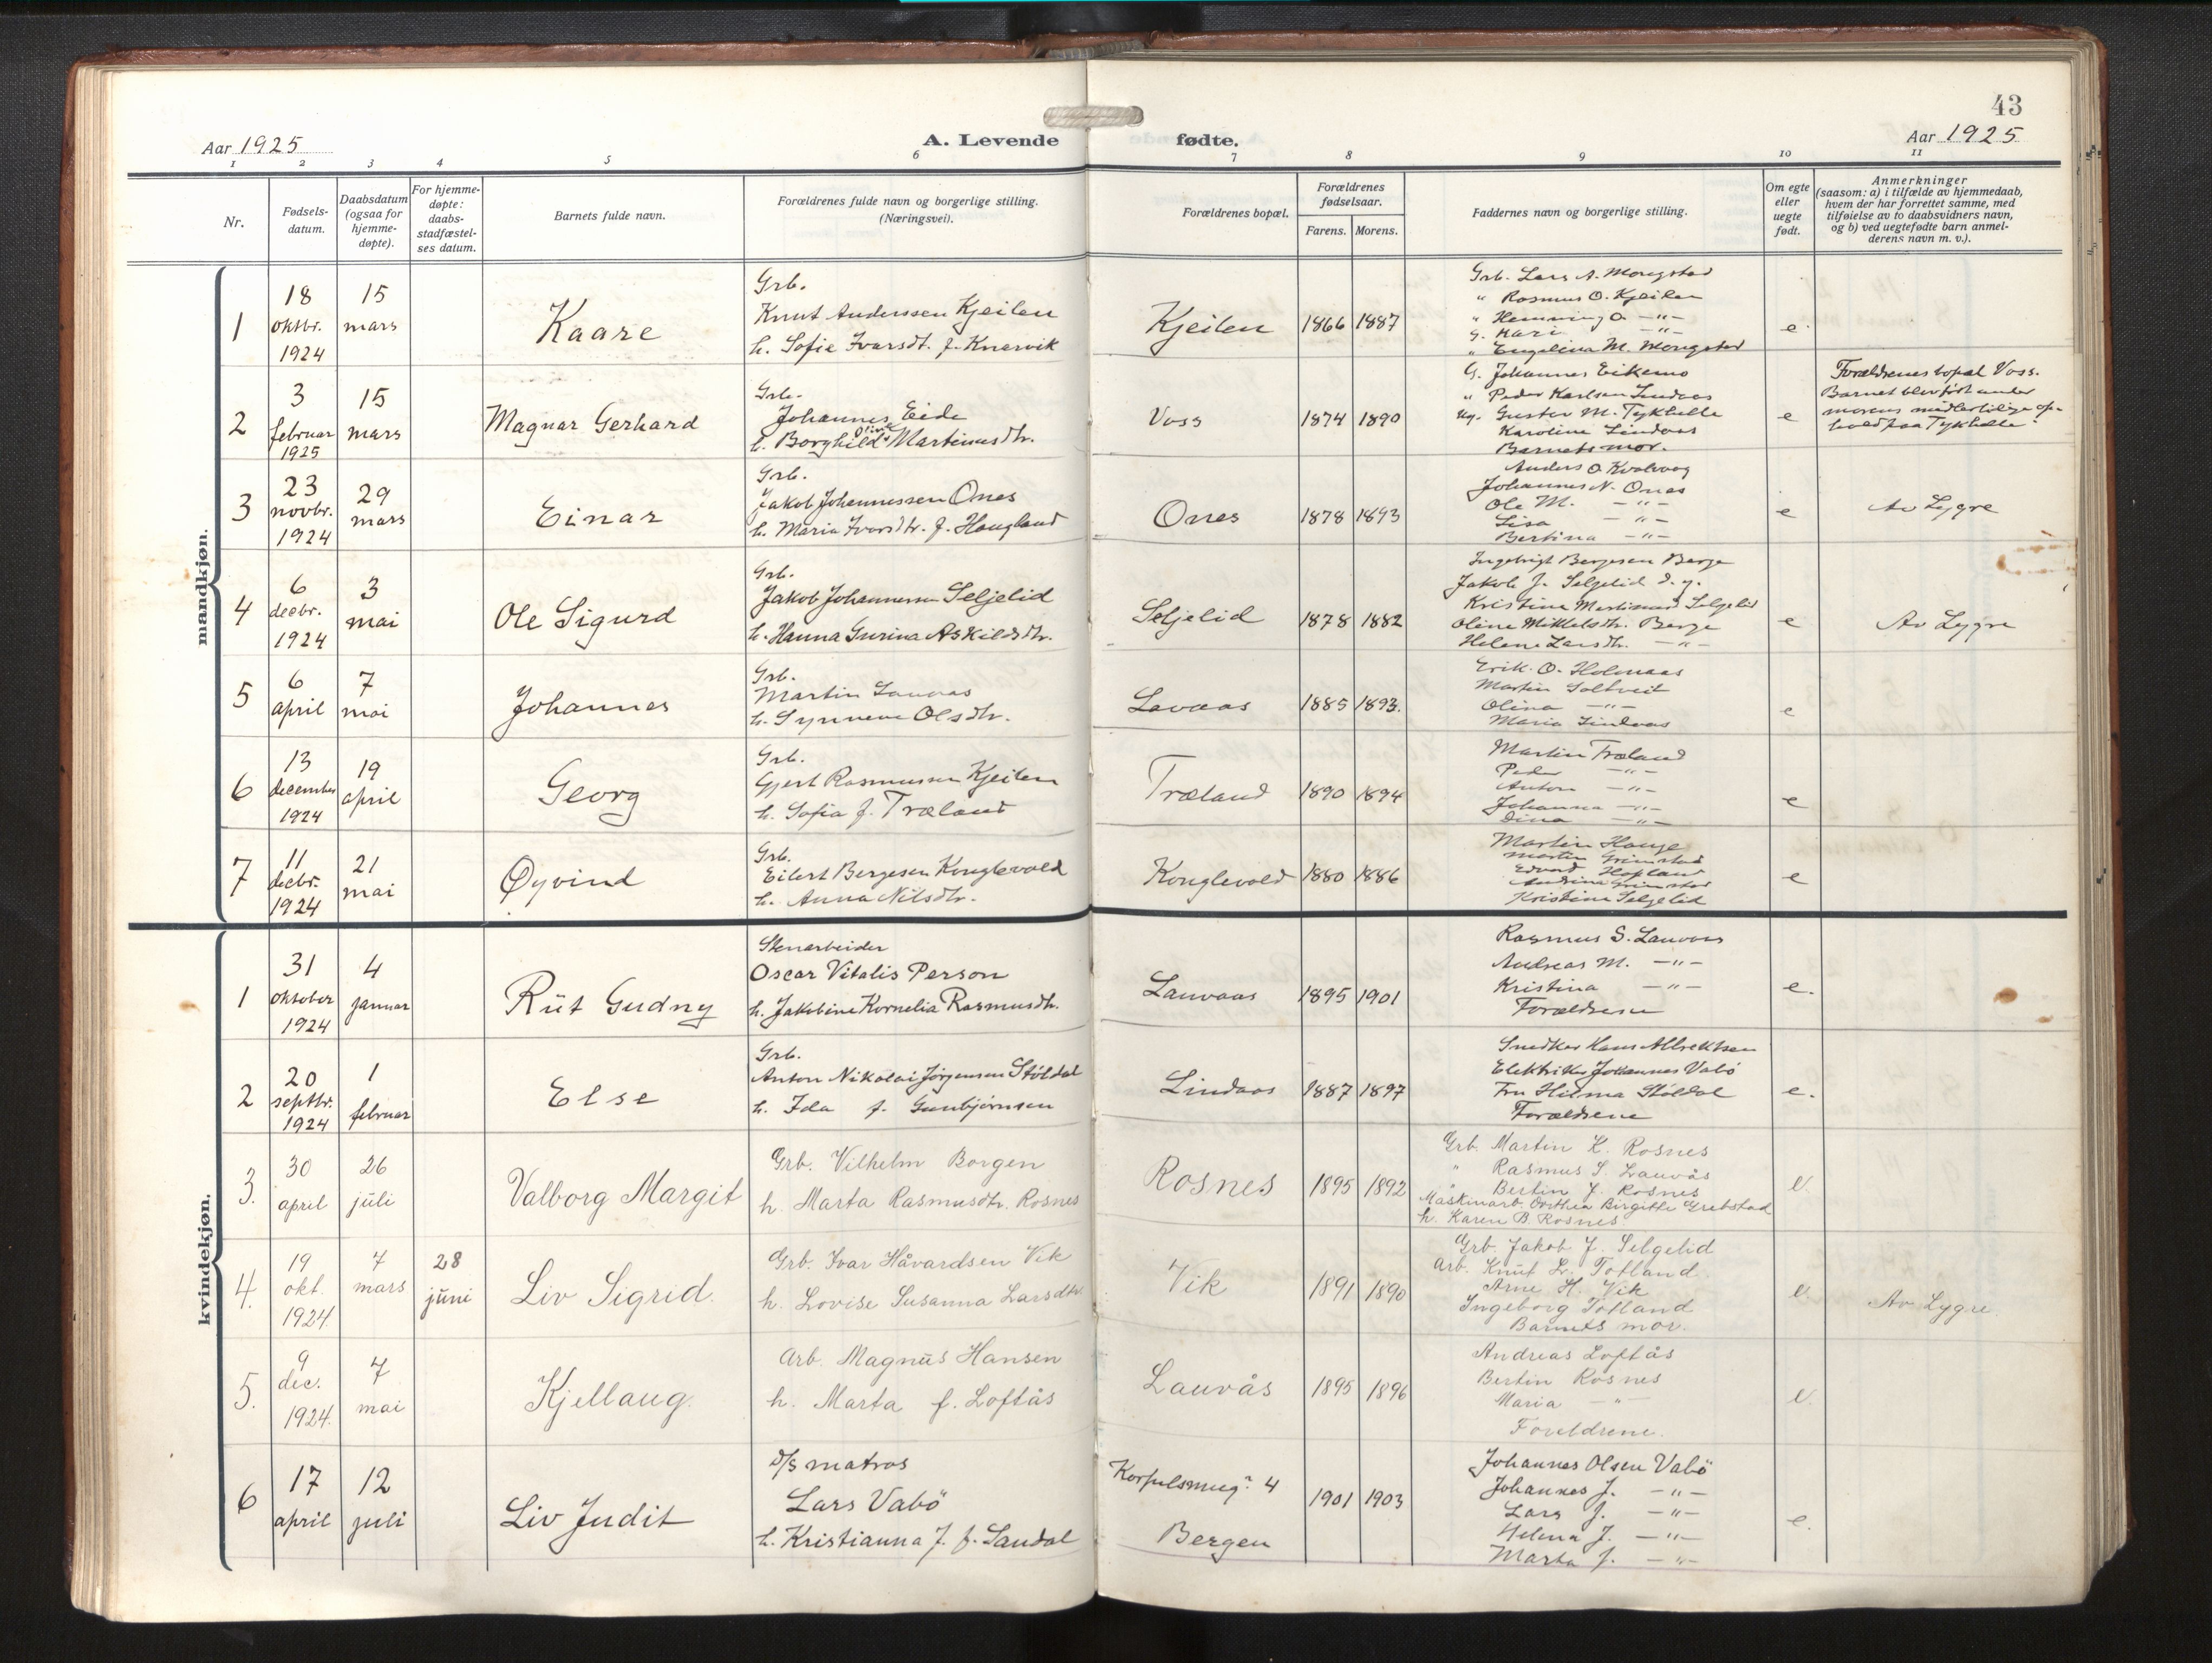 43
Aar 1925
A. Levende
fødte.
Aar 1925
1 2 3 4 5 6 7 8 9 10 11
Nr.
Fødsels-
datum.
Daabsdatum
(ogsaa for
hjemme-
døpte).
For hjemme-
døpte:
daabs-
stadfæstel-
ses datum.
Barnets fulde navn.
Forældrenes fulde navn og borgerlige stilling.
(Næringsvei).
Forældrenes bopæl.
Forældrenes
fødselsaar.
Farens. Morens.
Faddernes navn og borgerlige stilling.
Om egte
eller
uegte
født.
Anmerkninger
(saasom: a) i tilfælde av hjemmedaab,
hvem der har forrettet samme, med
tilføielse av to daabsvidners navn,
og b) ved uegtefødte barn anmel-
derens navn m. v.).
mandkjøn.
1
18
oktbr.
1924
15
mars
Kaare
Grb.
Knut Anderssen Kjeilen
h. Sofie Ivarsdt. f. Knarvik
Kjeilen
1866 1887
Grb. Lars A. Mongstad
" Rasmus O. Kjeilen
" Hemming O. -"-
G. Kari -"-
" Engelina M. Mongstad
e.
2
3
februar
1925
15
mars
Magnar Gerhard
Grb.
Johannes Eide
h. Borghild Olina Martinusdtr.
Voss
1874 1890
G. Johannes Eikemo
" Peder Karlsen Lindaas
Ug. Gustav M. Tykhelle
Karoline Lindaas
Barnets mor.
e
Forældrenes bopæl Voss.
Barnet blev født under
morens midlertidige op-
hold paa Tykhelle.
3
23
novbr.
1924
29
mars
Einar
Grb.
Jakob Johannessen Ones
h. Maria Ivarsdtr. f. Haugland
Ones
1878 1893
Anders O. Kvalvaag
Johannes N. Ones
Ole M. -"-
Lisa -"-
Bertina -"-
e
Av Lygre
4
6
decbr.
1924
3
mai
Ole Sigurd
Grb.
Jakob Johannessen Seljelid
h. Hanna Gurina Askildsdtr.
Seljelid
1878 1882
Ingebrigt Bergesen Berge
Jakob J. Selgelid d. y.
Kristina Martinusd. Selgelid
Oline Mikkelsdtr. Berge
Helene Larsdtr. -"-
e
Av Lygre
5
6
april
7
mai
Johannes
Grb.
Martin Lauvaas
h. Synneve Olsdtr.
Lavaas
1885 1893.
Erik O. Holmaas
Martin Soltveit
Olina -"-
Maria Lindaas
e
6
13
december
1924
19
april
Georg
Grb.
Gjert Rasmussen Kjeilen
h. Sofia f. Træland
Træland
1890 1894
Martin Træland
Peder -"-
Anton -"-
Johanna -"-
Dina -"-
e
7
11
decbr.
1924
21
mai
Øyvind
Grb.
Eilert Bergesen Konglevold
h. Anna Nilsdtr.
Konglevold
1880 1886
Martin Hauge
Martin Grimstad
Edvard Hopland
Andrina Grimstad
Kristine Selgelid
e
kvindekjøn.
1
31
oktober
1924
4
januar
Rut Gudny
Stenarbeider
Oscar Vitalis Person
h. Jakobine Kornelia Rasmusdtr.
Lauvaas
1895 1901
Rasmus S. Lauvaas
Andreas M. -"-
Kristina -"-
Forældrene
e.
2
20
septbr.
1924
1
februar
Else
Grb.
Anton Nikolai Jørgensen Støldal
h. Ida f. Gunbjørnsen
Lindaas
1887 1897
Snedker Hans Albrektsen
Elektriker Johannes Vabø
Fru Hilma Støldal
Forældrene
e.
3.
30
april
26
juli
Valborg Margit
Grb. Vilhelm Borgen
h. Marta Rasmusdtr. Rosnes
Rosnes
1895 1892
Grb. Martin K. Rosnes
" Rasmus S. Lauvås
" Bertin J. Rosnes
Maskinarb. Dorthea Birgitte Grebstad
h. Karen B. Rosnes
e.
4.
19
okt.
1924.
7
mars
28
juni
Liv Sigrid.
Grb. Ivar Håvardsen Vik
h. Lovise Susanna Larsdtr.
Vik
1891 1890
Grb. Jakob J. Selgelid
Arb. Knut L. Totland.
Arne H. Vik
Ingeborg Totland
Barnets mor.
e.
Av Lygre
5.
9
dec.
1924.
7
mai
Kjellaug.
Arb. Magnus Hansen
h. Marta f. Loftås
Lauvås
1895 1896
Andreas Loftås
Bertin Rosnes
Maria -"-
Foreldrene.
e.
6
17
april
12
juli
Liv Judit
D/S matros
Lars Vabö
h. Kristianna J. f. Sandal
Korpulsmug. 4
Bergen
1901 1903
Johannes Olsen Vabö
Johannes J. -"-
Lars J. -"-
Helena J. -"-
Marta J. -"-
e.